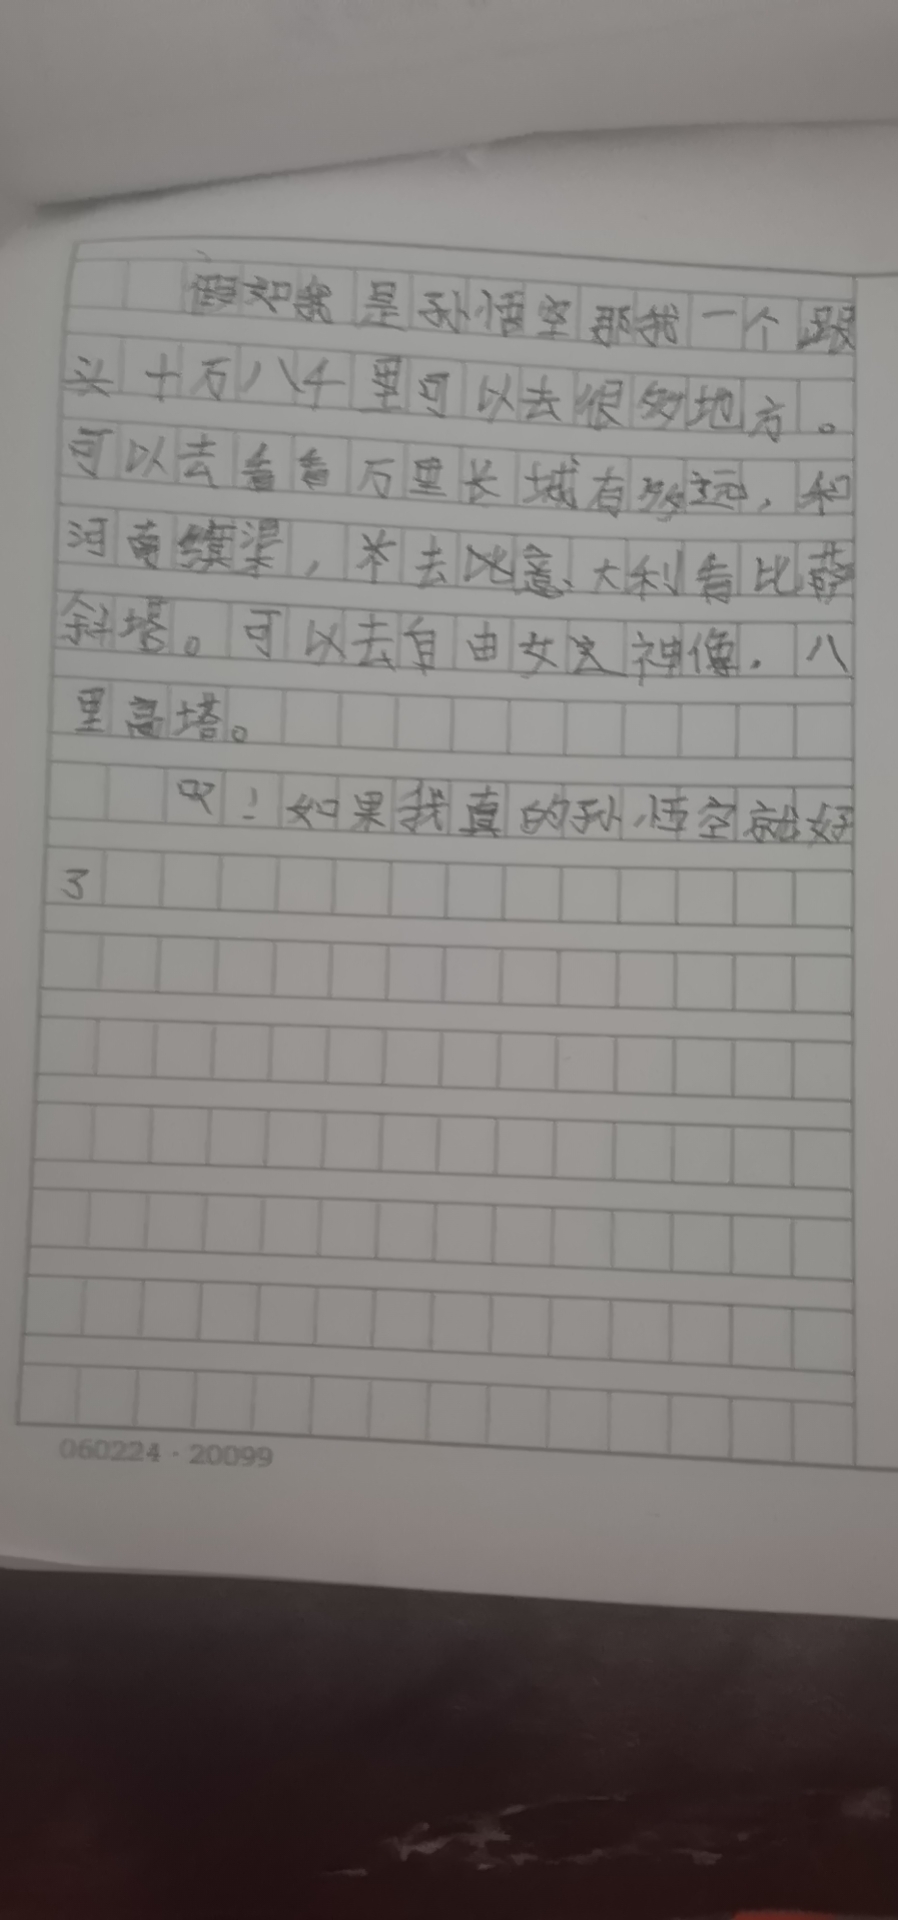 假如我是孙悟空那我一个跟
头十万八千里可以去很多地方。
可以去看看万里长城有多远,和
河南 渠,去 意大利看比萨
斜塔。可以去自由女 神像.八
里高塔。
！如果我真的孙悟空就好
了
060224·20099